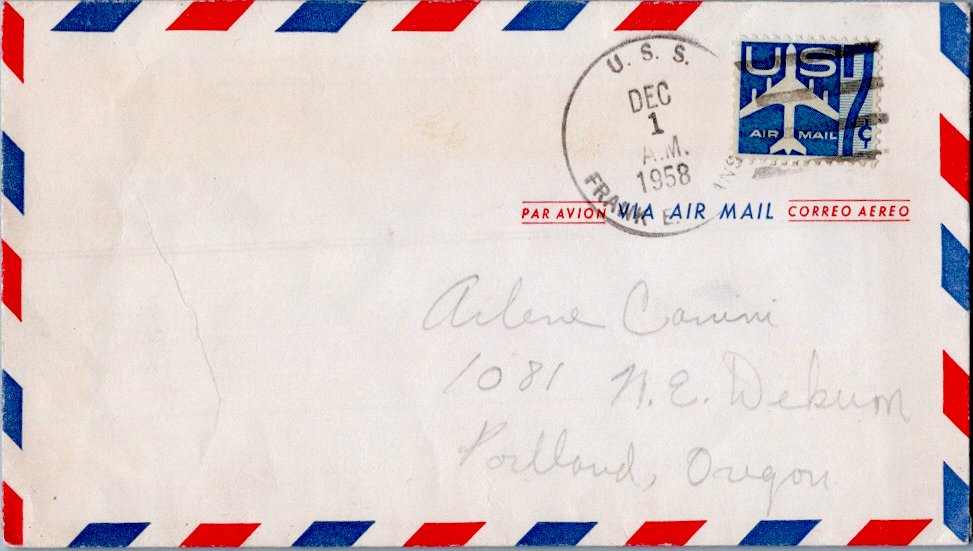 U.S.S.
DEC
1
A.M.
1958
FRANK E.
US
7¢
AIR MAIL
PAR AVION VIA AIR MAIL CORREO AEREO
Arlene
1081 N.E. Dekum
Portland, Oregon